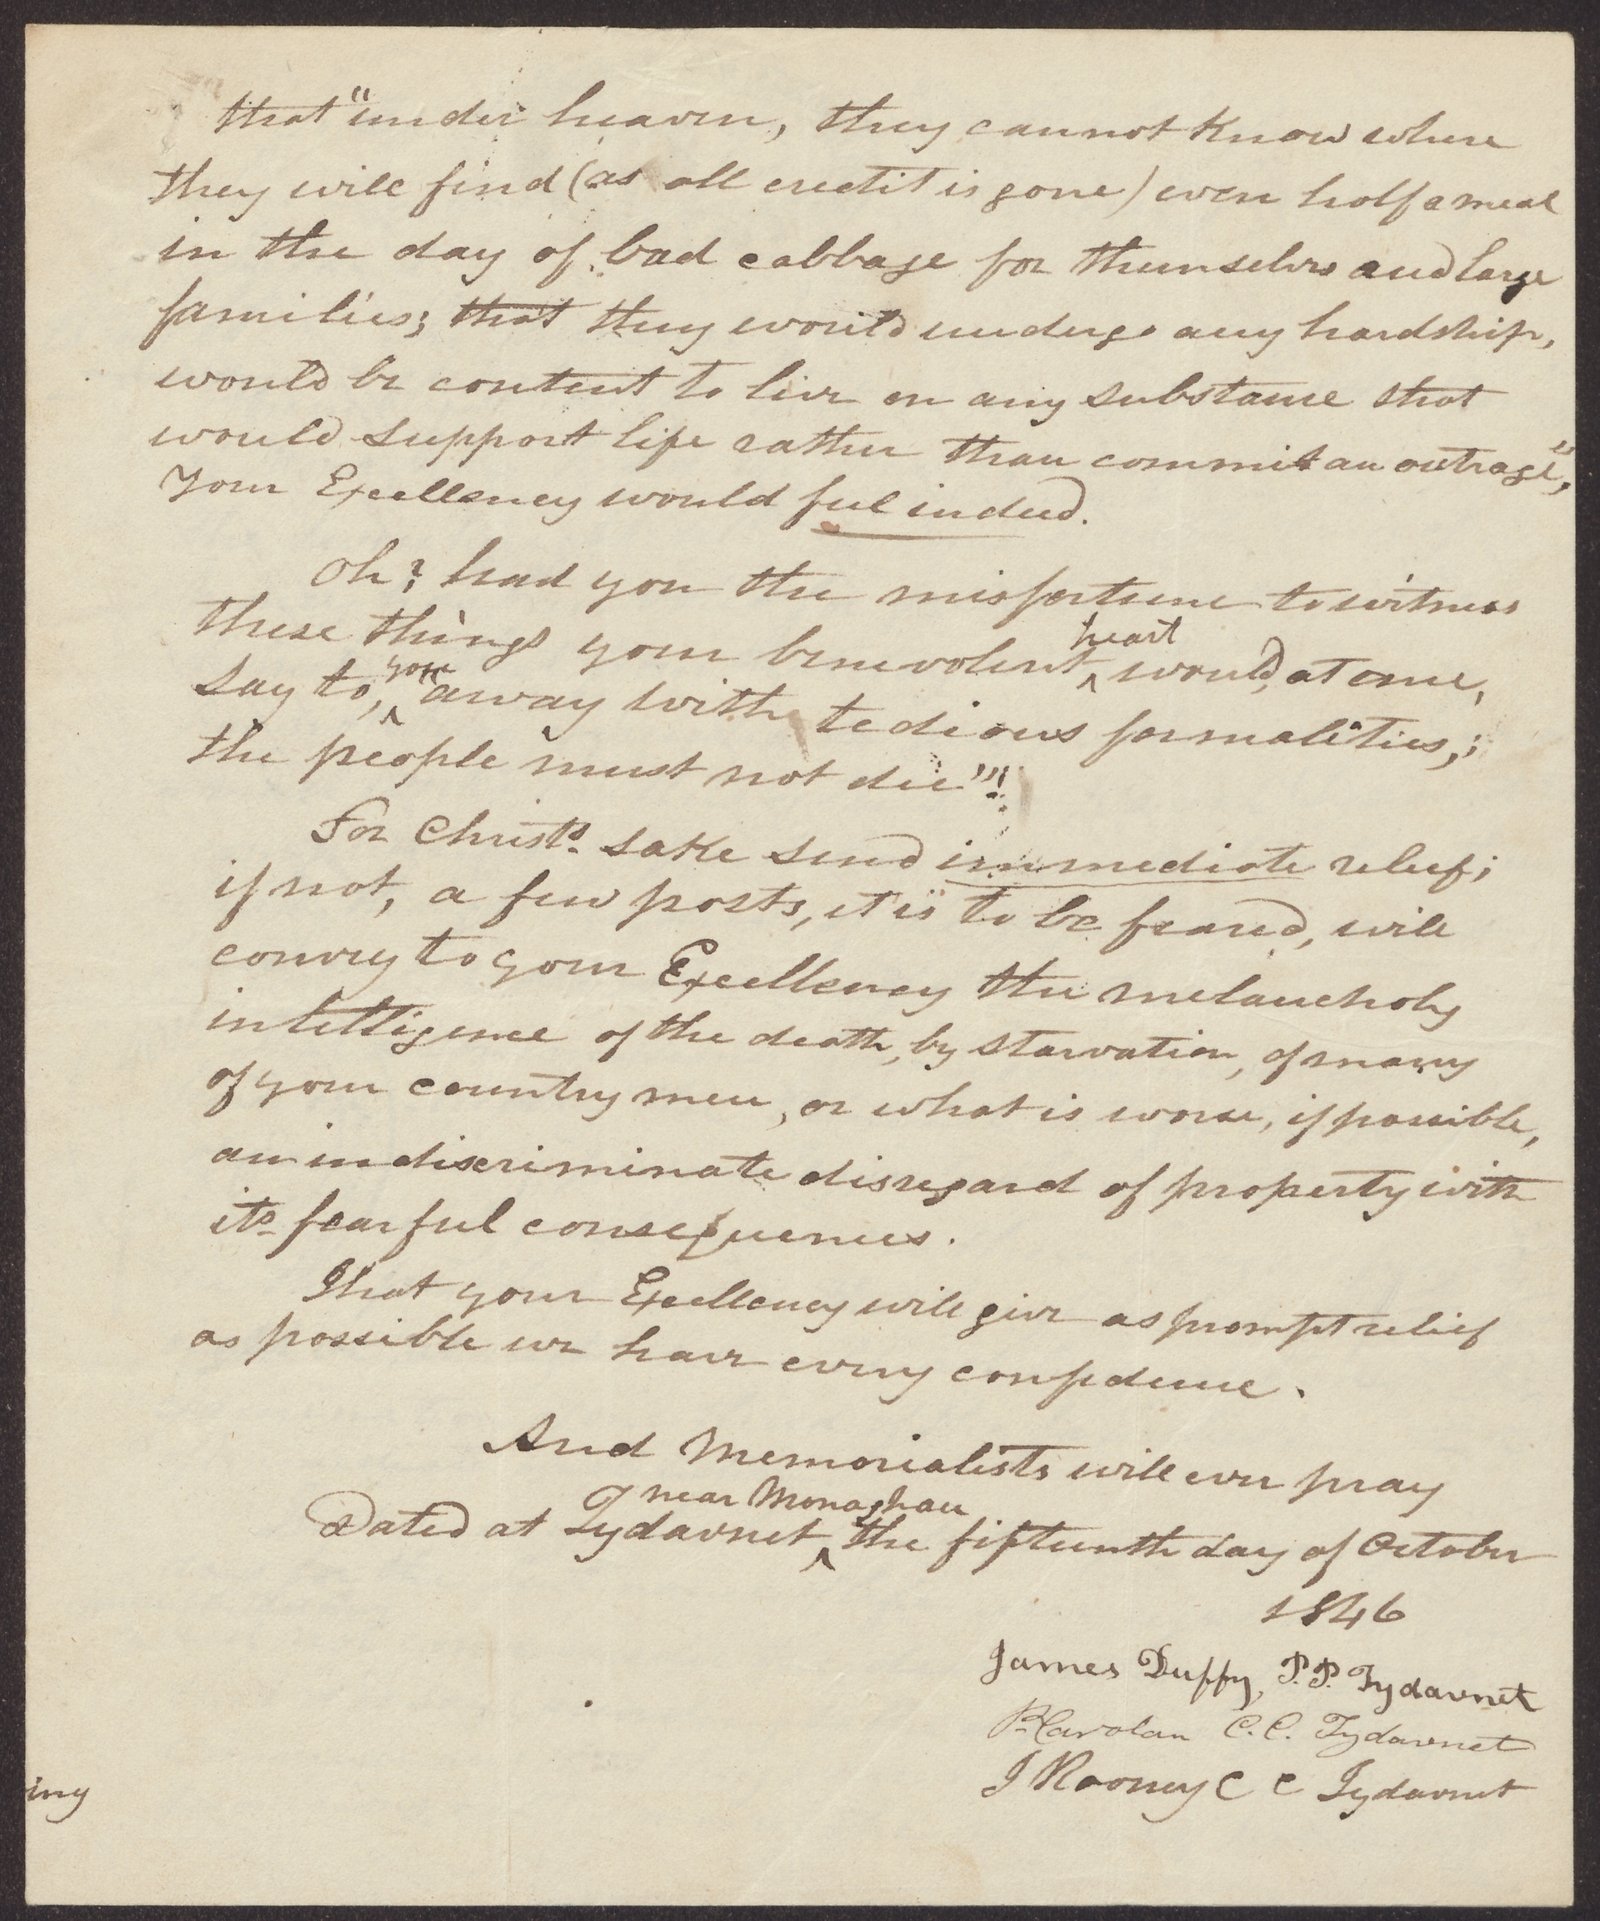 that "under heaven, they cannot know where
they will find (as all credit is gone) even half a meal
in the day of bad cabbage for themselves and large
families; that they would undergo any hardship,
would be content to live on any substance that
would support life rather than commit an outrage",
Your Excellency would feel indeed.
Oh! had you the misfortune to witness
these things your benevolent heart would, at once,
say to you, "away with tedious formalities,;
the people must not die"!
For Christs. sake send immediate relief;
if not, a few posts, it is to be feared, will
convey to your Excellency the melancholy
intelligence of the death, by starvation, of many
of your country men, or what is worse, if possible,
an indiscriminate disregard of property with
its fearful consequences.
That your Excellency will give as prompt relief
as possible we have every confidence.
And Memorialists will ever pray
Dated at Tydavnet near Monaghan the fifteenth day of October
1846
James Duffy, P.P. Tydavnet
P. Carolan C.C. Tydavnet
J Rooney C C Tydavnet
ing